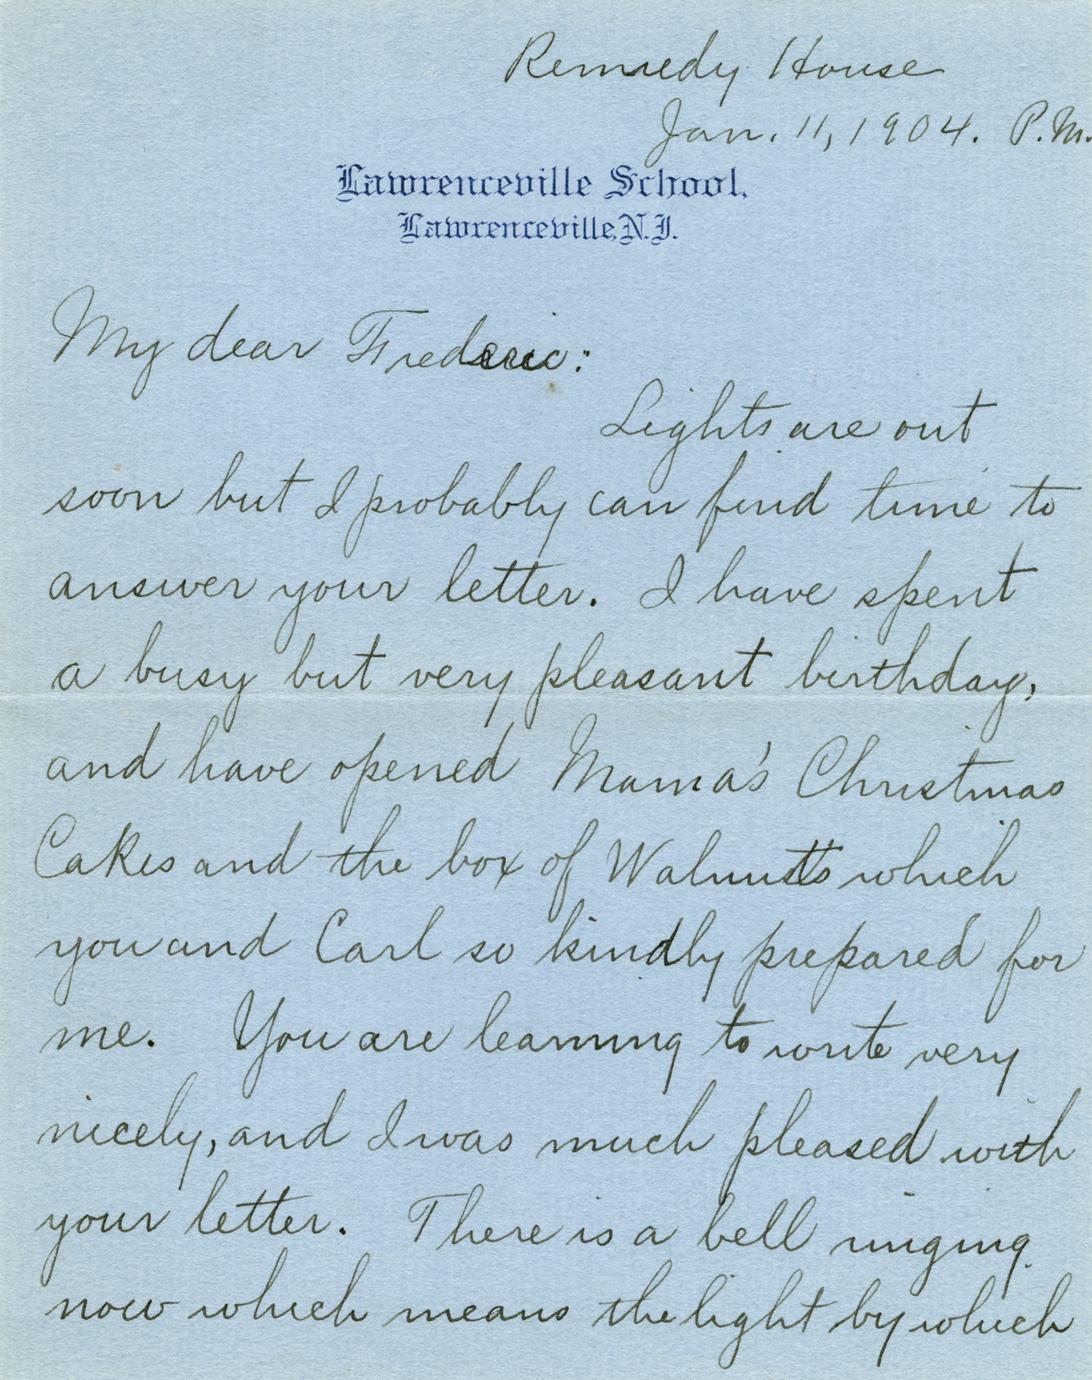 Remsedy House
Jan. 11, 1904. P.M.
Lawrenceville School,
Lawrenceville, N.J.
My dear Frederic:
Lights are out
soon but I probably can find time to
answer your letter. I have spent
a busy but very pleasant birthday,
and have opened Mama's Christmas
Cakes and the box of Walnutts which
you and Carl so kindly prepared for
me. You are learning to write very
nicely, and I was much pleased with
your letter. There is a bell ringing
now which means the light by which